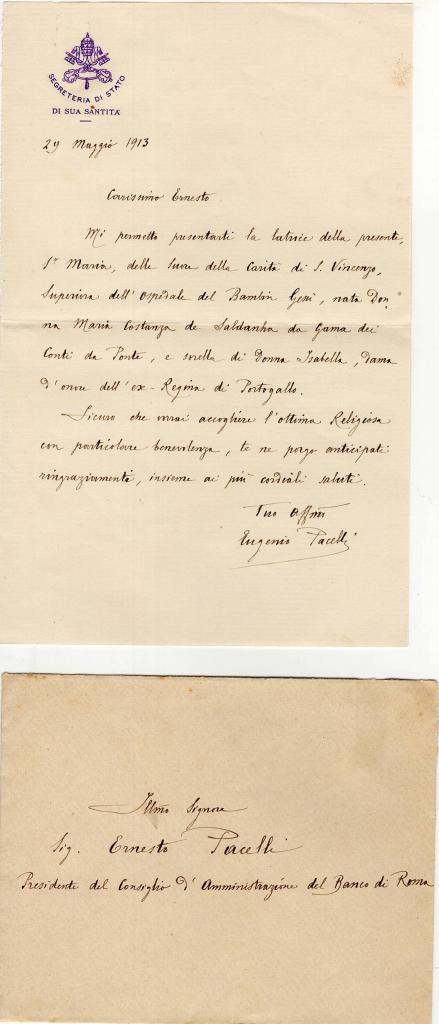 SEGRETERIA DI STATO
DI SUA SANTITÀ
29 Maggio 1913
Carissimo Ernesto
Mi permetto presentarti la latrice della presente,
Sr Maria, delle Suore della Carità di S. Vincenzo,
Superiora dell'Ospedale del Bambin Gesù, nata Don-
na Maria Costanza de Saldanha da Gama dei
Conti da Ponte, e sorella di Donna Isabella, dama
d'onore dell'ex-Regina di Portogallo.
Sicuro che vorrai accogliere l'ottima Religiosa
con particolare benevolenza, te ne porgo anticipati
ringraziamenti, insieme ai più cordiali saluti.
Tuo Affmo
Eugenio Pacelli
Illmo Signore
Sig. Ernesto Pacelli
Presidente del Consiglio d'Amministrazione del Banco di Roma